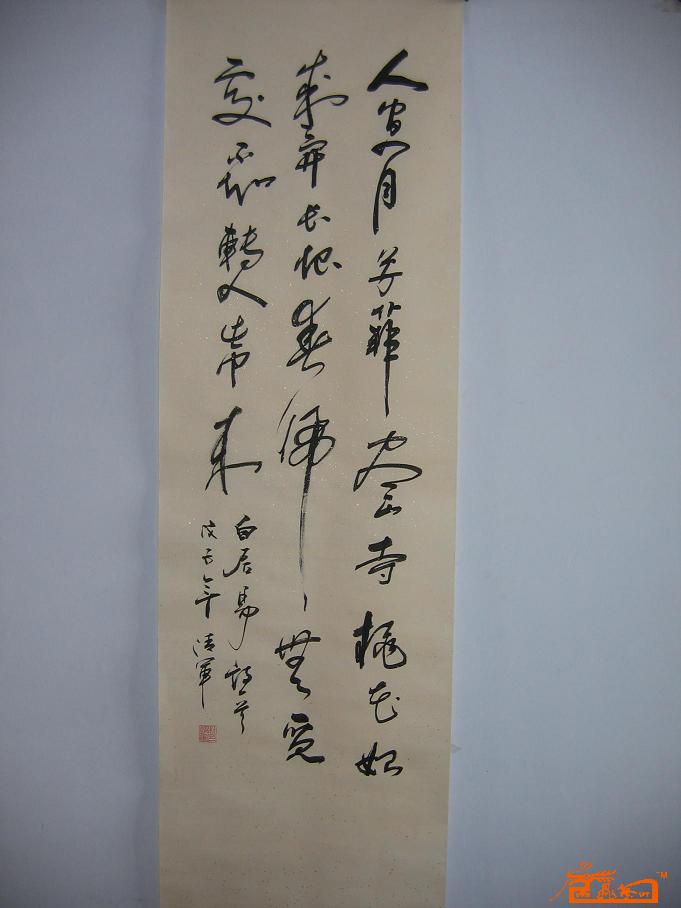 人间四月芳菲尽山寺桃花始
盛开长恨春归无觅
处不知轉入此中来
白居易詩首
戊子年清軍